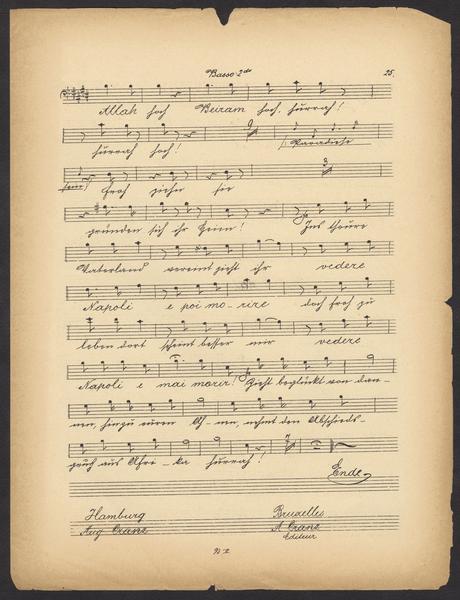 Basso 2do 25.
Allah hoch Beiram hoch, hurrah!
hurrah hoch! Paradiese
froh ziehen sie
gründen sich ihr Heim! Ins theure
Vaterland vereint zieht ihr vedere
Napoli e poi mo-rire doch froh zu
leben dort scheint besser mir vedere
Napoli e mai morir! Zieht beglückt von dan-
nen, hin zu euren Ah-nen, nehmt den Abschieds-
gruß aus Afri-ka hurrah!
Ende
Hamburg Bruxelles
Aug. Cranz A. Cranz
Editeur